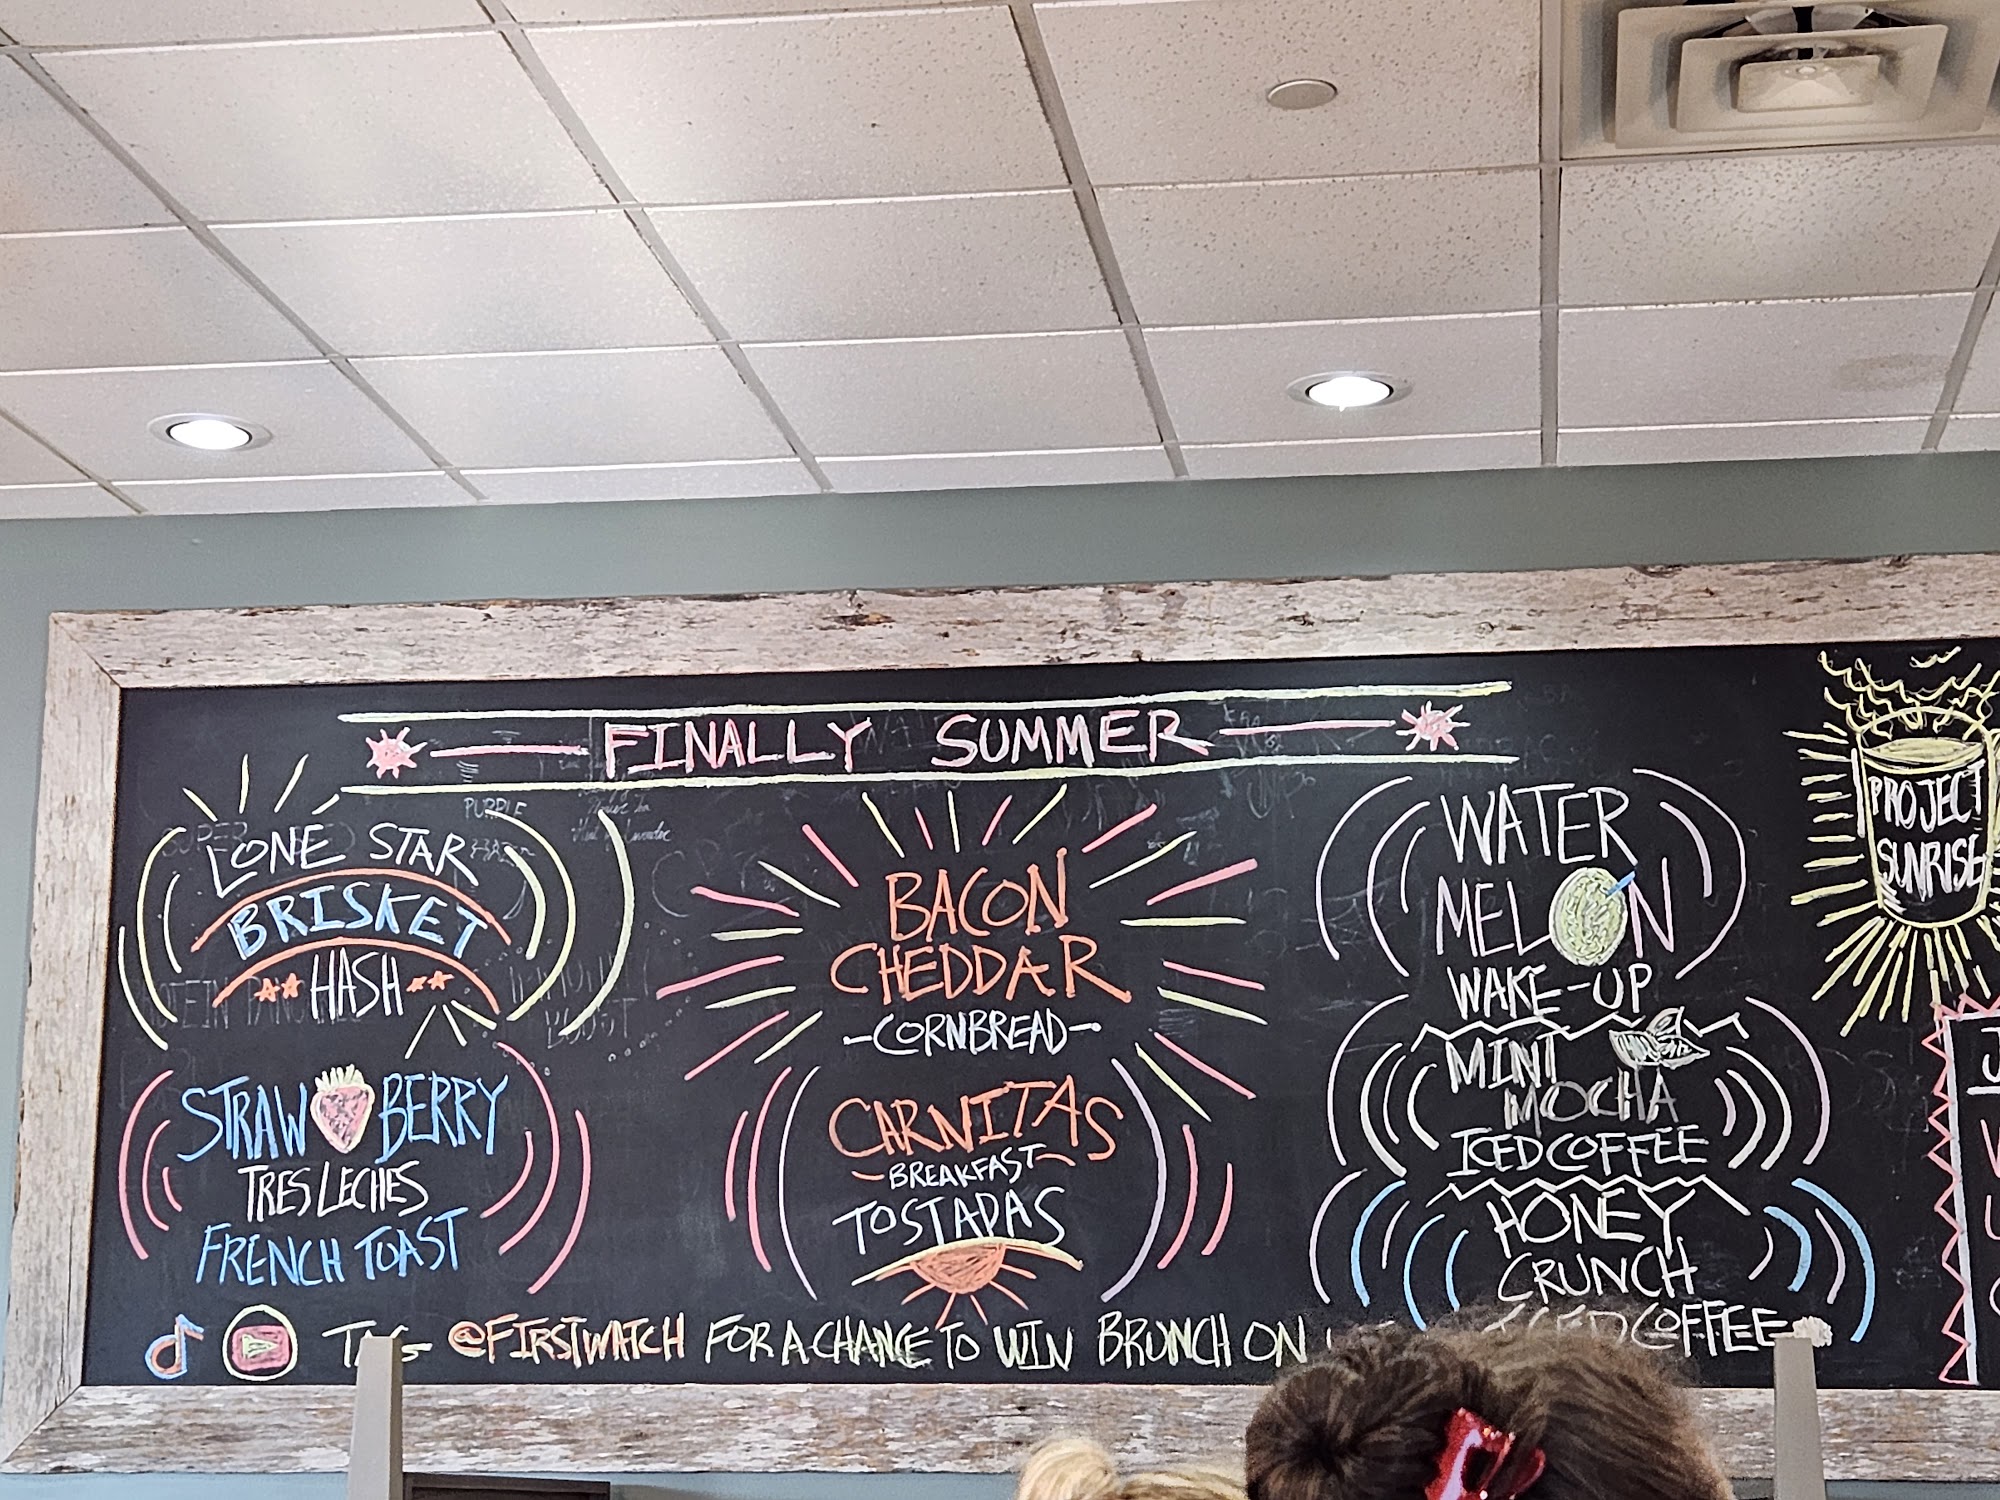 FINALLY SUMMER
LONE STAR
BRISKET
HASH
STRAWBERRY
TRES LECHES
FRENCH TOAST
BACON
CHEDDAR
-CORNBREAD-
CARNITAS
BREAKFAST
TOSTADAS
WATER
MELON
WAKE-UP
MINT
MOCHA
ICED COFFEE
HONEY
CRUNCH
ICED COFFEE
PROJECT
SUNRISE
TAG @FIRSTWATCH FOR A CHANCE TO WIN BRUNCH ON
PURPLE